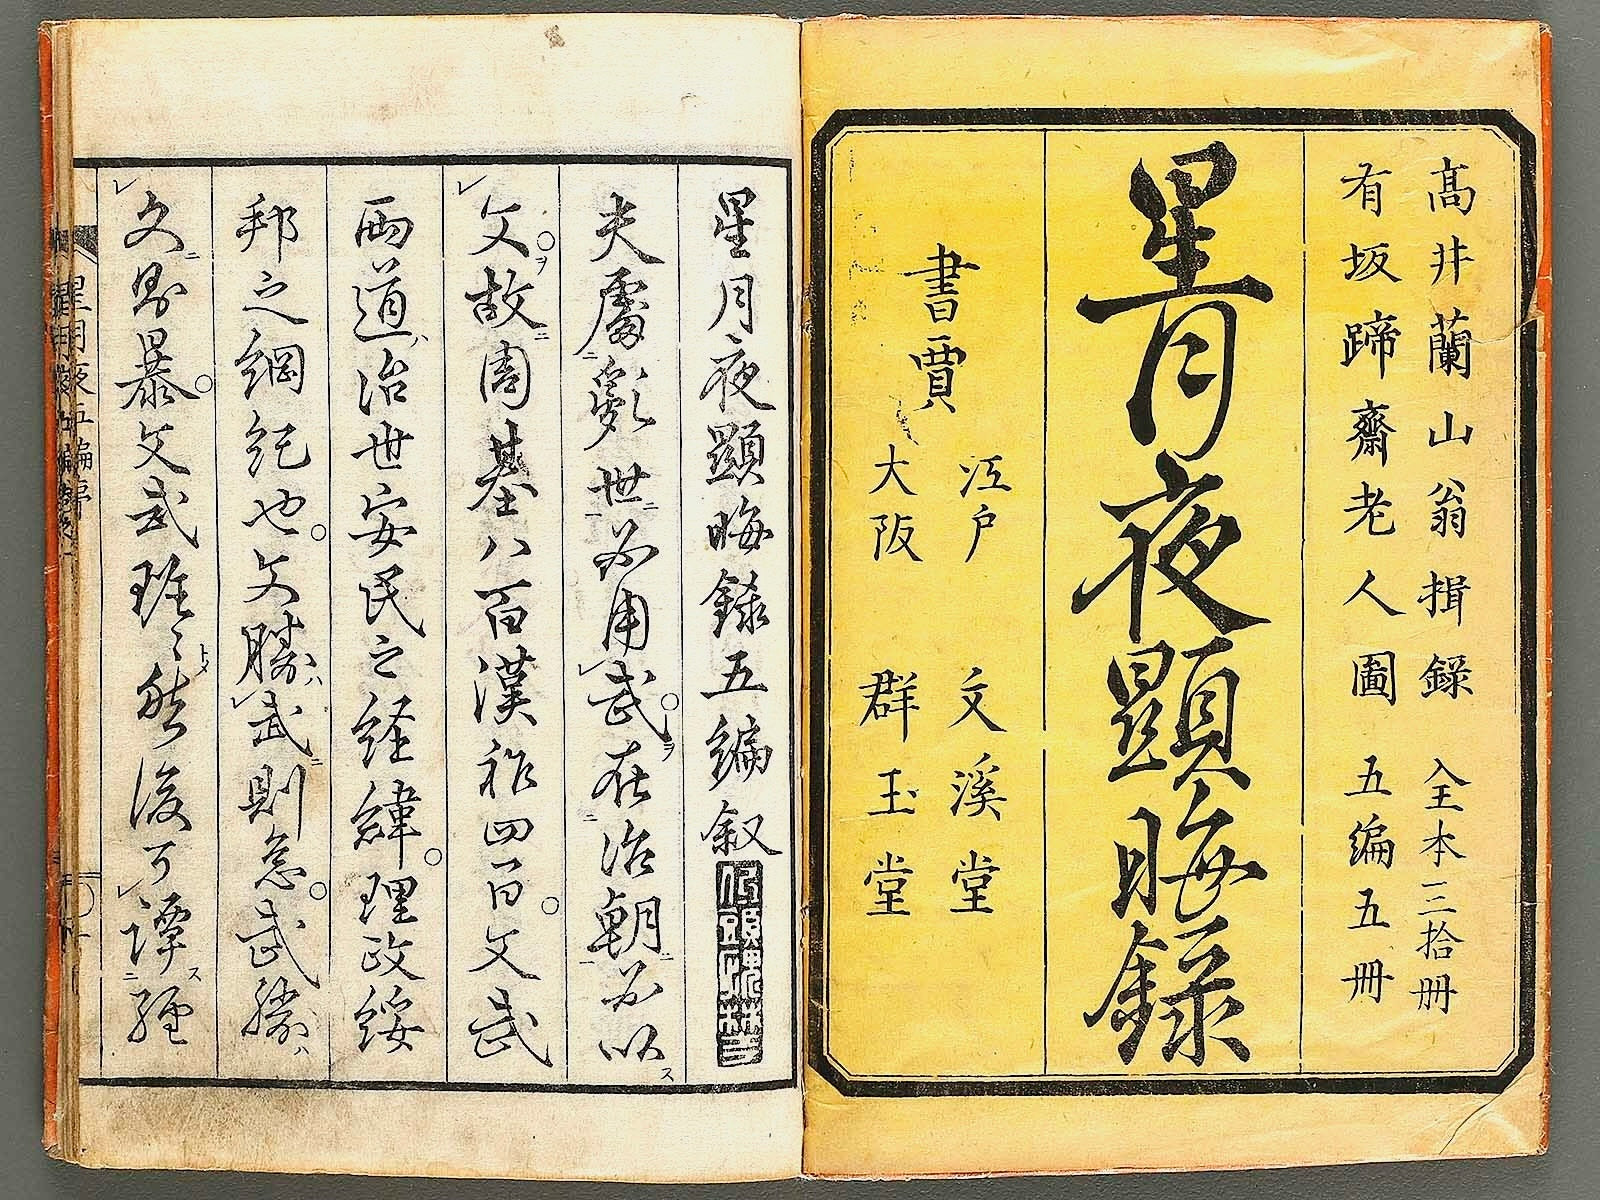 高井蘭山翁揖錄 全本三拾冊
有坂蹄齋老人圖 五編五冊
星月夜顕晦録
書賈
江戸 文溪堂
大阪 群玉堂
星月夜顕晦録五編叙
夫處亂世必用武在治朝必以
文故周基八百漢祚四百文武
両道治世安民之経緯理政綏
邦之綱紀也文勝武則怠武勝
文則暴文武 然後可譚経